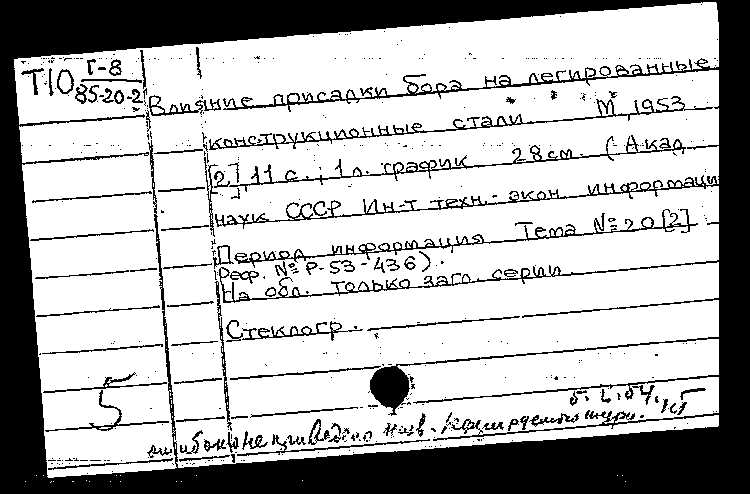 Т10 Г-8
85-20-2
Влияние присадки бора на легированные
конструкционные стали. М, 1953
[2], 11 с.; 1 л. график 28 см. (Акад.
наук СССР Ин-т техн.-экон. информаци
Период. информация Тема № 20 [2]
Реф. № Р-53-436).
На обл. только загл. серии
Стеклогр.
5
ошибочно не приведено назв.